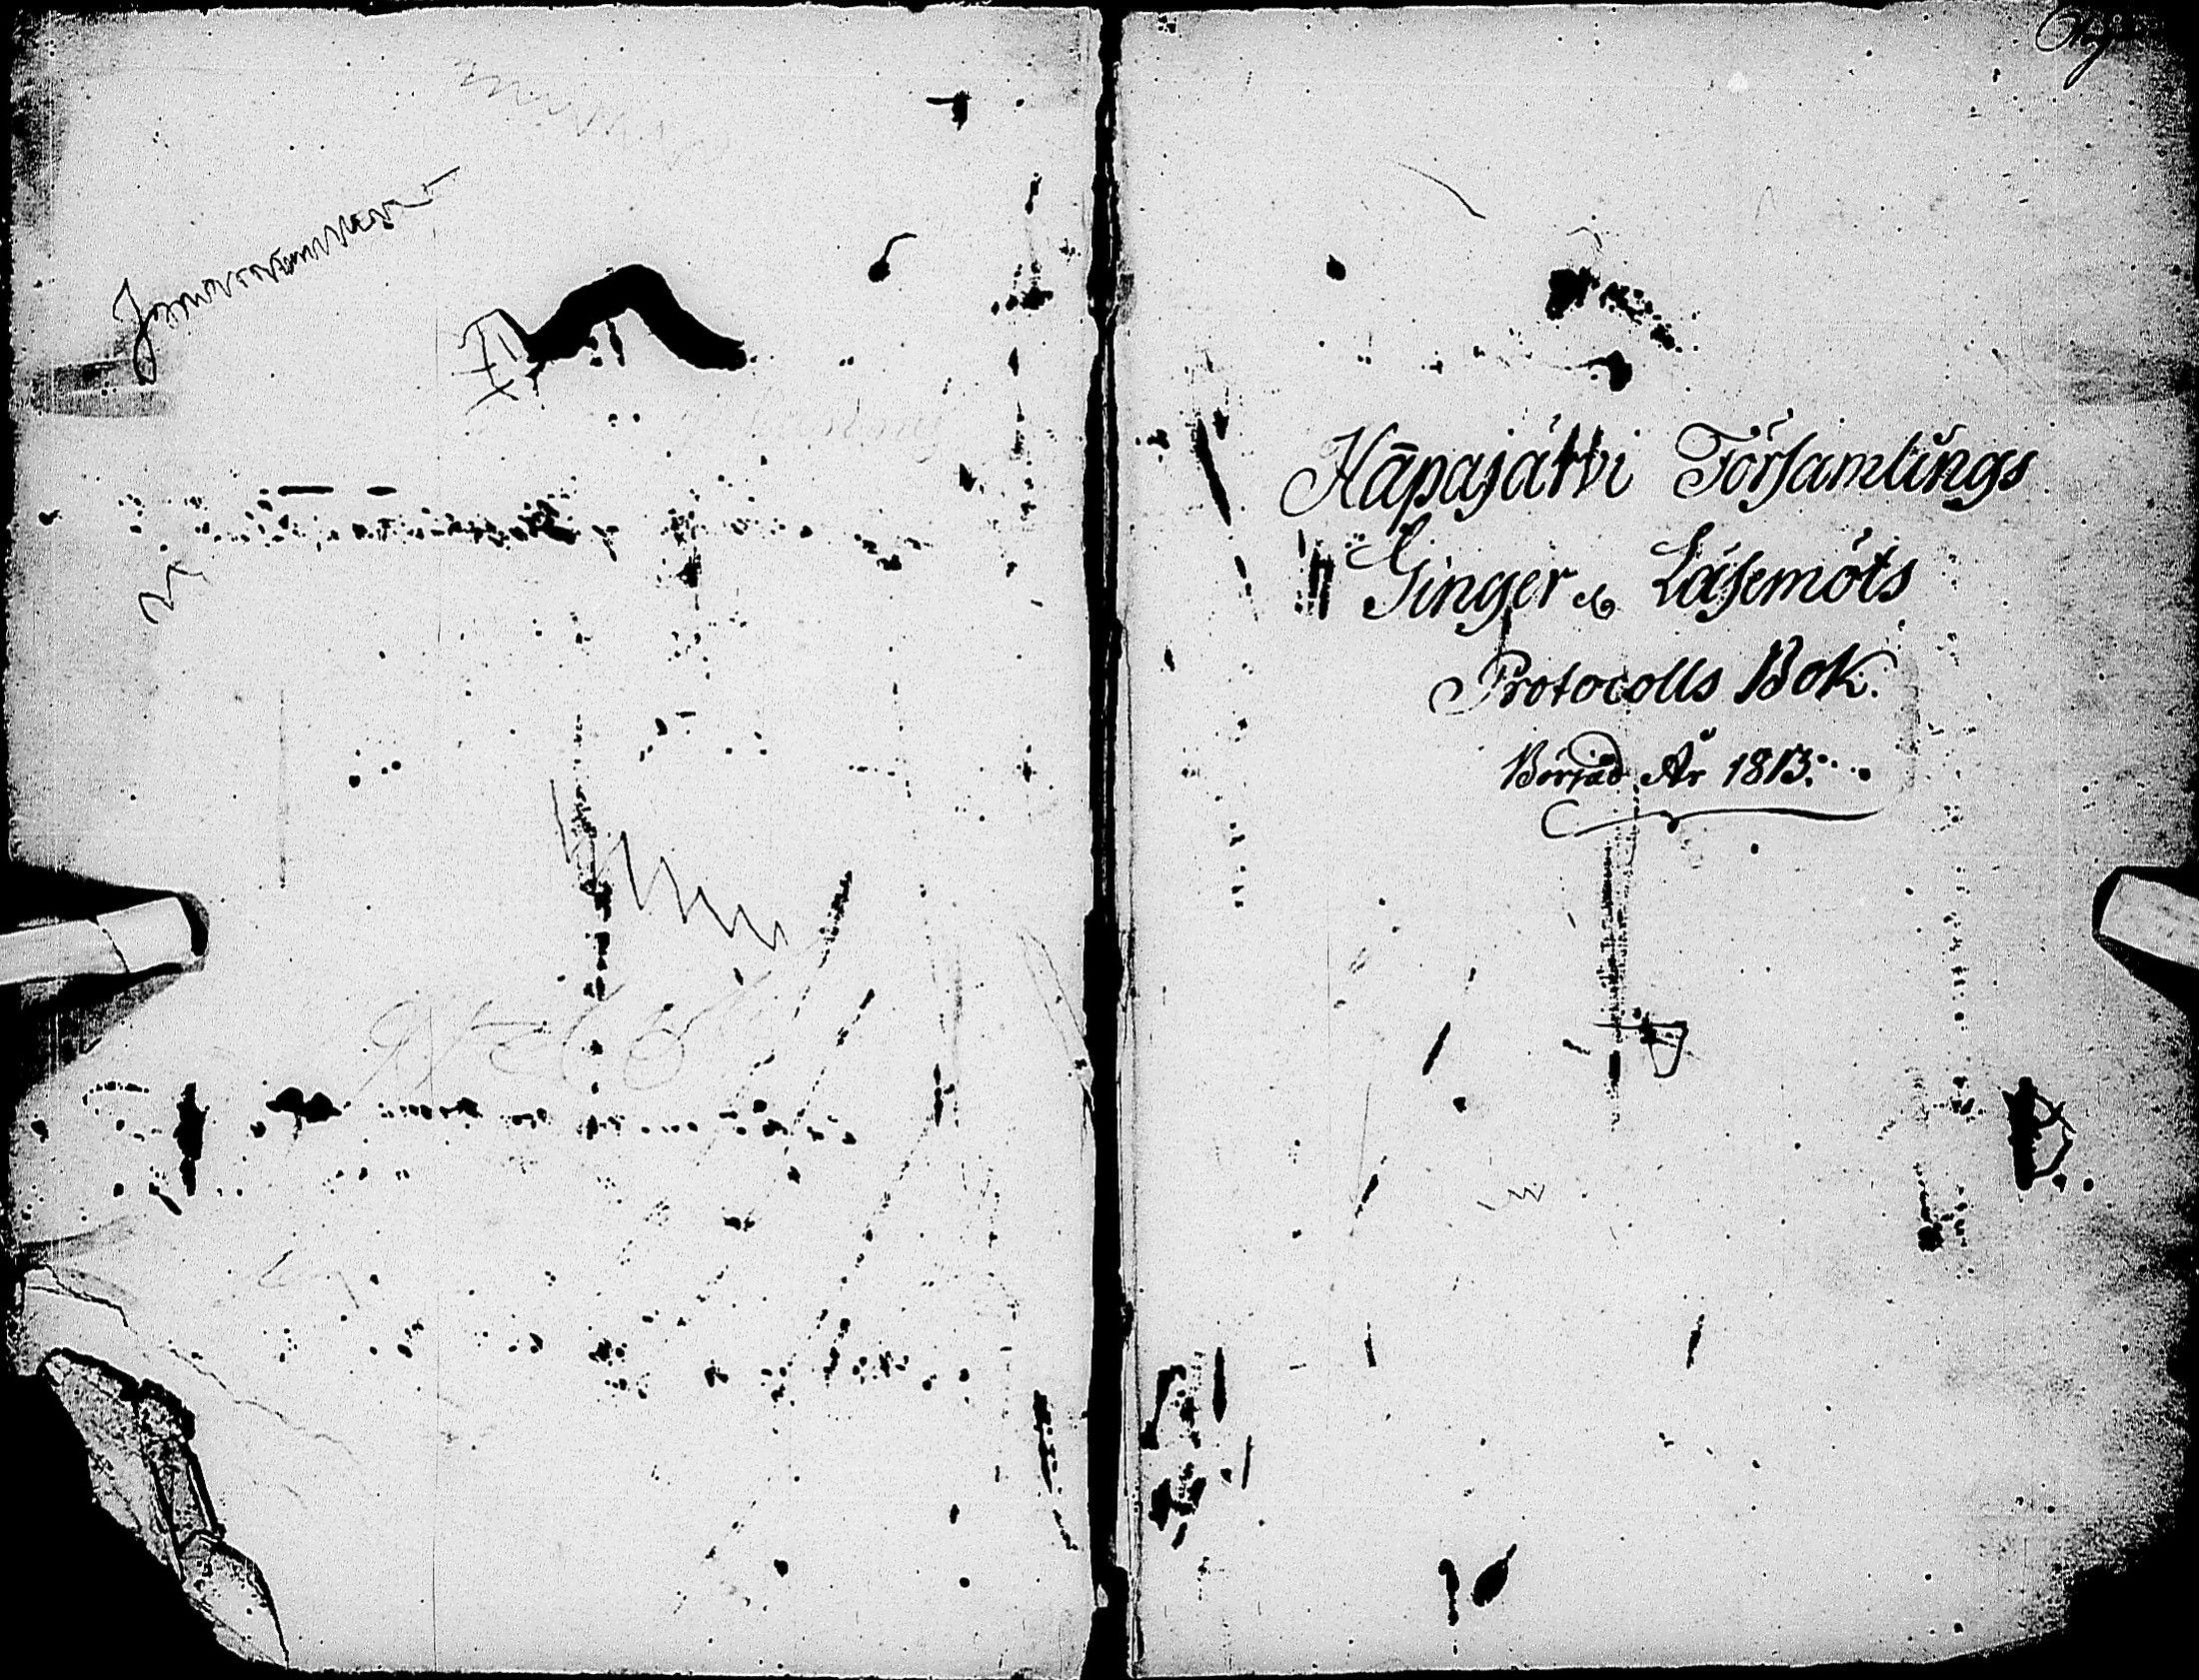 Hāpajärvi Församlings
Ginger & Läsemöts
Protocolls Bok.
Börjad År 1813.